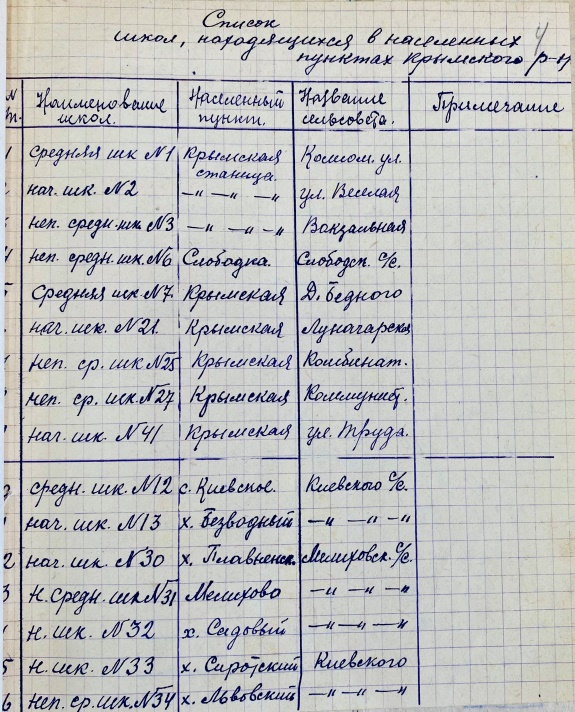 Список 4
школ, находящихся в населенных
пунктах Крымского р-н
N Наименование Населенный Название Примечание
п. школ. пункт. сельсовета.
1 средняя шк №1 Крымская станица. Комсом. ул.
нач. шк. №2 —„ —„ —„ ул. Веселая
неп. средн. шк №3 —„ —„ —„ Вокзальная
4 неп. средн. шк. №6 Слободка. Слободск. с/с.
5 Средняя шк №7. Крымская Д. Бедного
нач. шк. №21. Крымская Луначарская
неп. ср. шк №25 Крымская Комбинат.
неп. ср. шк. №27 Крымская Коммунист.
нач. шк. №41 Крымская ул. Труда.
средн. шк. №12 с. Киевское. Киевского с/с.
нач. шк. №13 х. Безводный —„ —„ —„
2 нач. шк. №30 х. Плавненск. Мелиховск. с/с.
3 н. средн. шк №31 Мелихово —„ —„ —„
н. шк. №32 х. Садовый —„ —„ —„
5 н. шк. №33 х. Саратский Киевского
6 неп. ср. шк. №34 х. Львовский —„ —„ —„